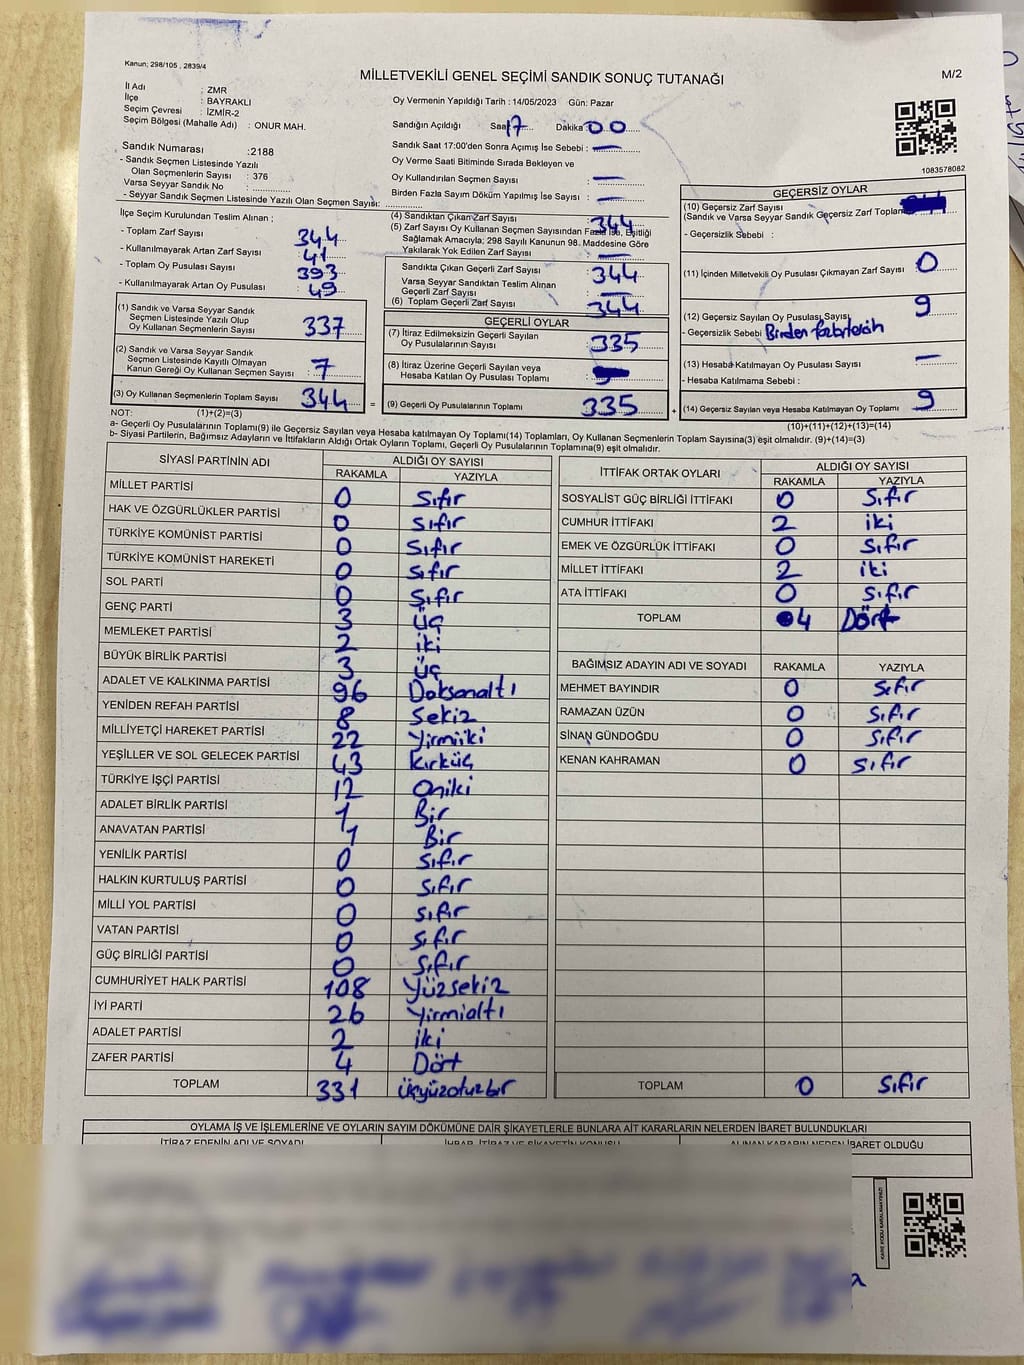 Kanun; 298/105 , 2839/4
MİLLETVEKİLİ GENEL SEÇİMİ SANDIK SONUÇ TUTANAĞI
M/2
İl Adı : ZMR
İlçe : BAYRAKLI
Seçim Çevresi : İZMİR-2
Seçim Bölgesi (Mahalle Adı) : ONUR MAH.
Oy Vermenin Yapıldığı Tarih : 14/05/2023 Gün: Pazar
Sandığın Açıldığı Saat 17 Dakika 00
Sandık Saat 17:00'den Sonra Açımış İse Sebebi : —
Oy Verme Saati Bitiminde Sırada Bekleyen ve
Oy Kullandırılan Seçmen Sayısı : —
Birden Fazla Sayım Döküm Yapılmış İse Sayısı : —
Sandık Numarası :2188
- Sandık Seçmen Listesinde Yazılı
Olan Seçmenlerin Sayısı : 376
Varsa Seyyar Sandık No :
- Seyyar Sandık Seçmen Listesinde Yazılı Olan Seçmen Sayısı:
1083578082
İlçe Seçim Kurulundan Teslim Alınan ;
- Toplam Zarf Sayısı 344
- Kullanılmayarak Artan Zarf Sayısı 41
- Toplam Oy Pusulası Sayısı 393
- Kullanılmayarak Artan Oy Pusulası 49
(1) Sandık ve Varsa Seyyar Sandık
Seçmen Listesinde Yazılı Olup
Oy Kullanan Seçmenlerin Sayısı 337
(2) Sandık ve Varsa Seyyar Sandık
Seçmen Listesinde Kayıtlı Olmayan
Kanun Gereği Oy Kullanan Seçmen Sayısı : 7
(3) Oy Kullanan Seçmenlerin Toplam Sayısı 344 =
(4) Sandıktan Çıkan Zarf Sayısı : 344
(5) Zarf Sayısı Oy Kullanan Seçmen Sayısından Fazla İse, Eşitliği
Sağlamak Amacıyla; 298 Sayılı Kanunun 98. Maddesine Göre
Yakılarak Yok Edilen Zarf Sayısı : —
Sandıkta Çıkan Geçerli Zarf Sayısı : 344
Varsa Seyyar Sandıktan Teslim Alınan
Geçerli Zarf Sayısı : —
(6) Toplam Geçerli Zarf Sayısı : 344
GEÇERLİ OYLAR
(7) İtiraz Edilmeksizin Geçerli Sayılan
Oy Pusulalarının Sayısı : 335
(8) İtiraz Üzerine Geçerli Sayılan veya
Hesaba Katılan Oy Pusulası Toplamı
(9) Geçerli Oy Pusulalarının Toplamı 335 +
GEÇERSİZ OYLAR
(10) Geçersiz Zarf Sayısı
(Sandık ve Varsa Seyyar Sandık Geçersiz Zarf Toplamı
- Geçersizlik Sebebi :
(11) İçinden Milletvekili Oy Pusulası Çıkmayan Zarf Sayısı 0
(12) Geçersiz Sayılan Oy Pusulası Sayısı 9
- Geçersizlik Sebebi Birden fazla tercih
(13) Hesaba Katılmayan Oy Pusulası Sayısı —
- Hesaba Katılmama Sebebi :
(14) Geçersiz Sayılan veya Hesaba Katılmayan Oy Toplamı 9
NOT: (1)+(2)=(3)
(10)+(11)+(12)+(13)=(14)
a- Geçerli Oy Pusulalarının Toplamı(9) ile Geçersiz Sayılan veya Hesaba katılmayan Oy Toplamı(14) Toplamları, Oy Kullanan Seçmenlerin Toplam Sayısına(3) eşit olmalıdır. (9)+(14)=(3)
b- Siyasi Partilerin, Bağımsız Adayların ve İttifakların Aldığı Ortak Oyların Toplamı, Geçerli Oy Pusulalarının Toplamına(9) eşit olmalıdır.
SİYASİ PARTİNİN ADI ALDIĞI OY SAYISI
RAKAMLA YAZIYLA
MİLLET PARTİSİ 0 Sıfır
HAK VE ÖZGÜRLÜKLER PARTİSİ 0 Sıfır
TÜRKİYE KOMÜNİST PARTİSİ 0 Sıfır
TÜRKİYE KOMÜNİST HAREKETİ 0 Sıfır
SOL PARTİ 0 Sıfır
GENÇ PARTİ 3 üç
MEMLEKET PARTİSİ 2 iki
BÜYÜK BİRLİK PARTİSİ 3 üç
ADALET VE KALKINMA PARTİSİ 96 Doksanaltı
YENİDEN REFAH PARTİSİ 8 Sekiz
MİLLİYETÇİ HAREKET PARTİSİ 22 Yirmiiki
YEŞİLLER VE SOL GELECEK PARTİSİ 43 Kırküç
TÜRKİYE İŞÇİ PARTİSİ 12 Oniki
ADALET BİRLİK PARTİSİ 1 Bir
ANAVATAN PARTİSİ 1 Bir
YENİLİK PARTİSİ 0 Sıfır
HALKIN KURTULUŞ PARTİSİ 0 Sıfır
MİLLİ YOL PARTİSİ 0 Sıfır
VATAN PARTİSİ 0 Sıfır
GÜÇ BİRLİĞİ PARTİSİ 0 Sıfır
CUMHURİYET HALK PARTİSİ 108 Yüzsekiz
İYİ PARTİ 26 Yirmialtı
ADALET PARTİSİ 2 iki
ZAFER PARTİSİ 4 Dört
TOPLAM 331 Üçyüzotuzbir
İTTİFAK ORTAK OYLARI ALDIĞI OY SAYISI
RAKAMLA YAZIYLA
SOSYALİST GÜÇ BİRLİĞİ İTTİFAKI 0 Sıfır
CUMHUR İTTİFAKI 2 iki
EMEK VE ÖZGÜRLÜK İTTİFAKI 0 Sıfır
MİLLET İTTİFAKI 2 iki
ATA İTTİFAKI 0 Sıfır
TOPLAM 4 Dört
BAĞIMSIZ ADAYIN ADI VE SOYADI RAKAMLA YAZIYLA
MEHMET BAYINDIR 0 Sıfır
RAMAZAN ÜZÜN 0 Sıfır
SİNAN GÜNDOĞDU 0 Sıfır
KENAN KAHRAMAN 0 Sıfır
TOPLAM 0 Sıfır
OYLAMA İŞ VE İŞLEMLERİNE VE OYLARIN SAYIM DÖKÜMÜNE DAİR ŞİKAYETLERLE BUNLARA AİT KARARLARIN NELERDEN İBARET BULUNDUKLARI
İTİRAZ EDENİN ADI VE SOYADI İHBAR, İTİRAZ VE ŞİKAYETİN KONUSU ALINAN KARARIN NEDEN İBARET OLDUĞU